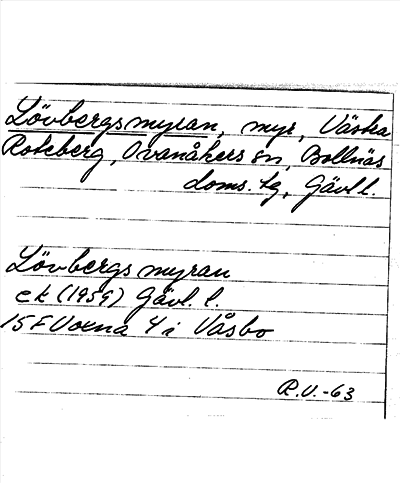 Lövbergsmyran, myr, Västra
Roteberg, Ovanåkers sn, Bollnäs
doms. tg, Gävl. l.
Lövbergsmyran
ek (1959) Gävl. l.
15F Voxna 4 i Våsbo
R.V. -63